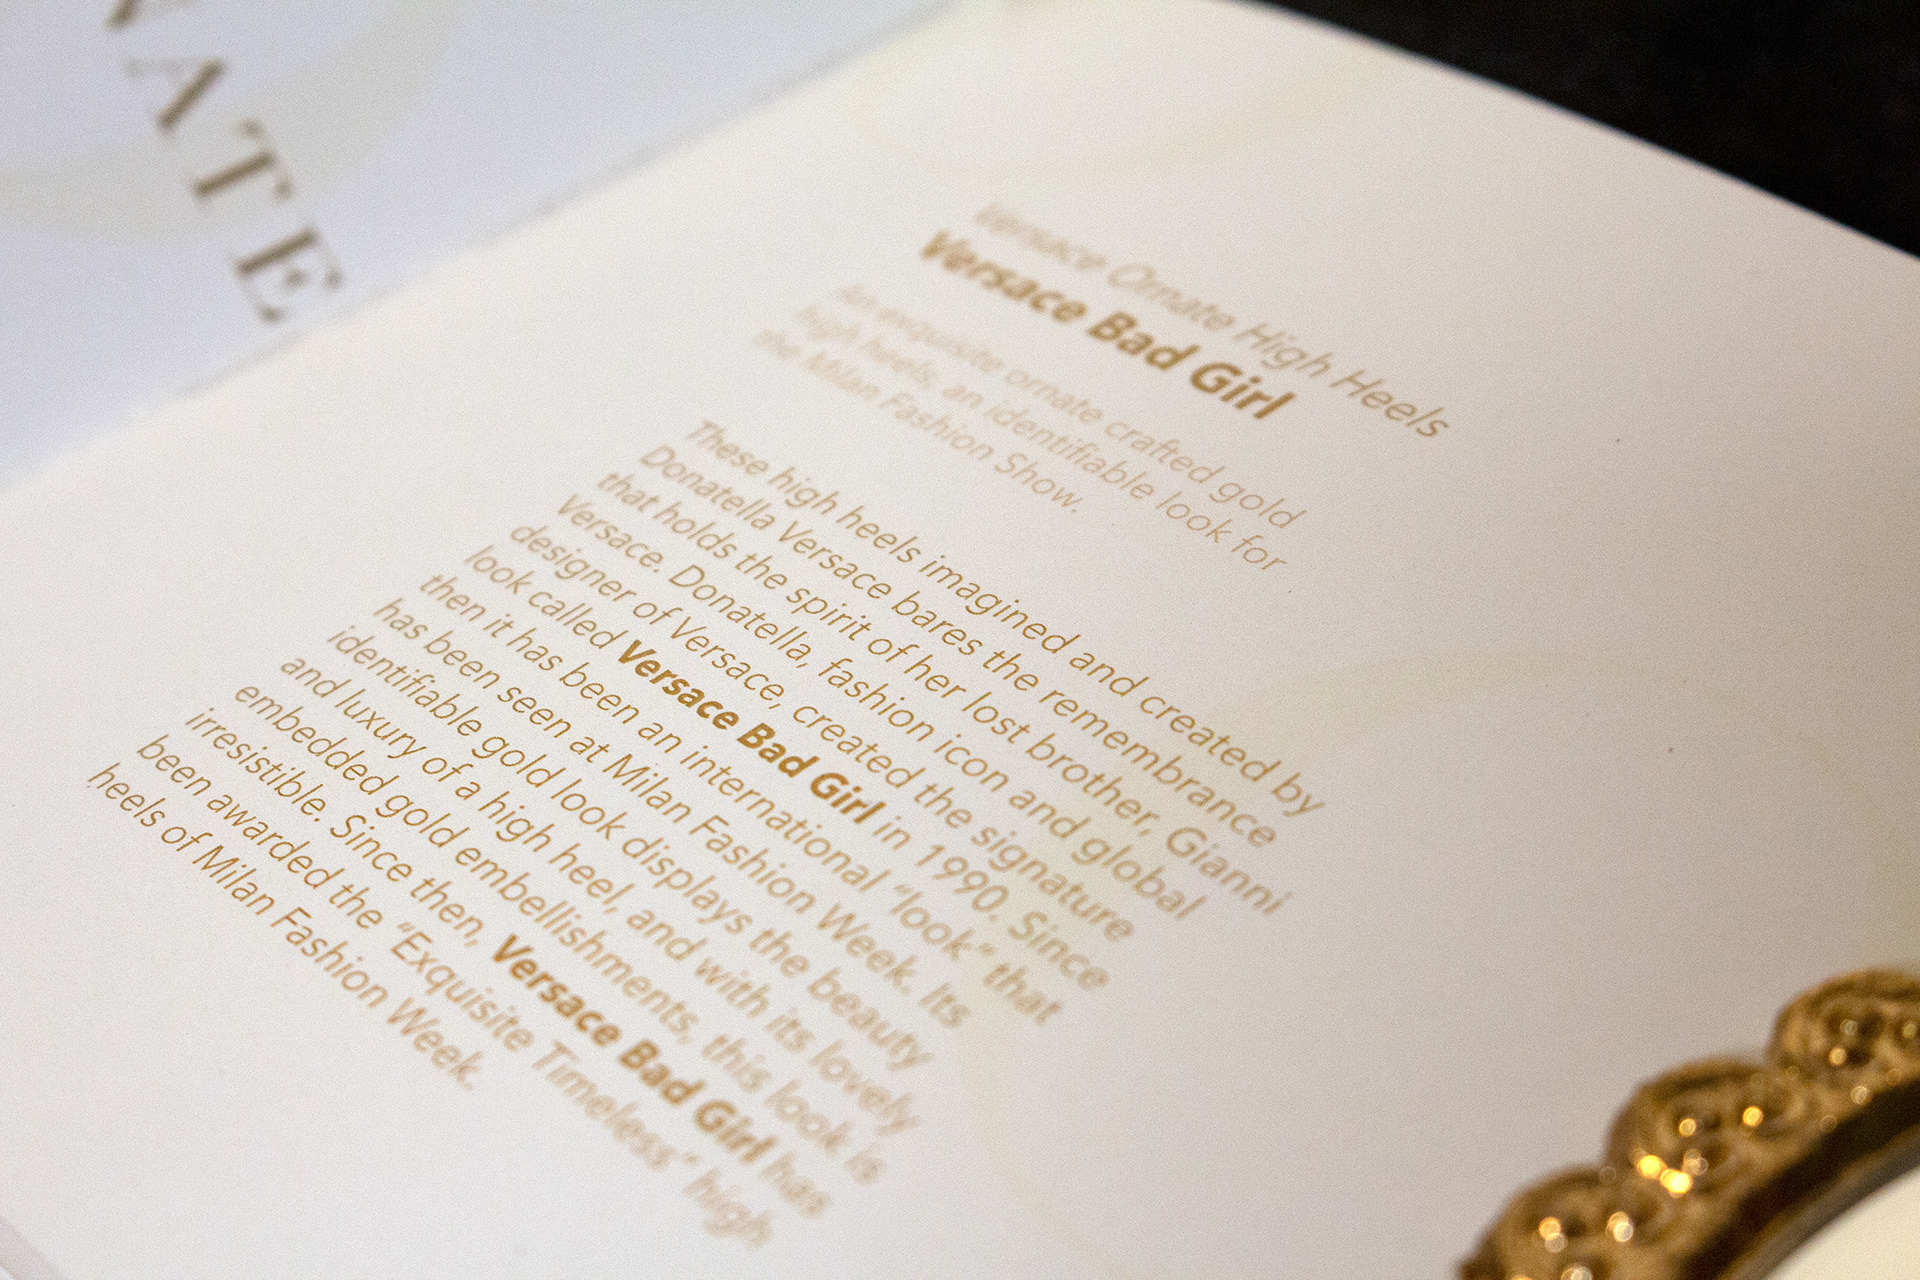 ATE
Versace Ornate High Heels
Versace Bad Girl
An exquisite ornate crafted gold
high heels, an identifiable look for
the Milan Fashion Show.
These high heels imagined and created by
Donatella Versace bares the remembrance
that holds the spirit of her lost brother, Gianni
Versace. Donatella, fashion icon and global
designer of Versace, created the signature
look called Versace Bad Girl in 1990. Since
then it has been an international "look" that
has been seen at Milan Fashion Week. Its
identifiable gold look displays the beauty
and luxury of a high heel, and with its lovely
embedded gold embellishments, this look is
irresistible. Since then, Versace Bad Girl has
been awarded the "Exquisite Timeless" high
heels of Milan Fashion Week.